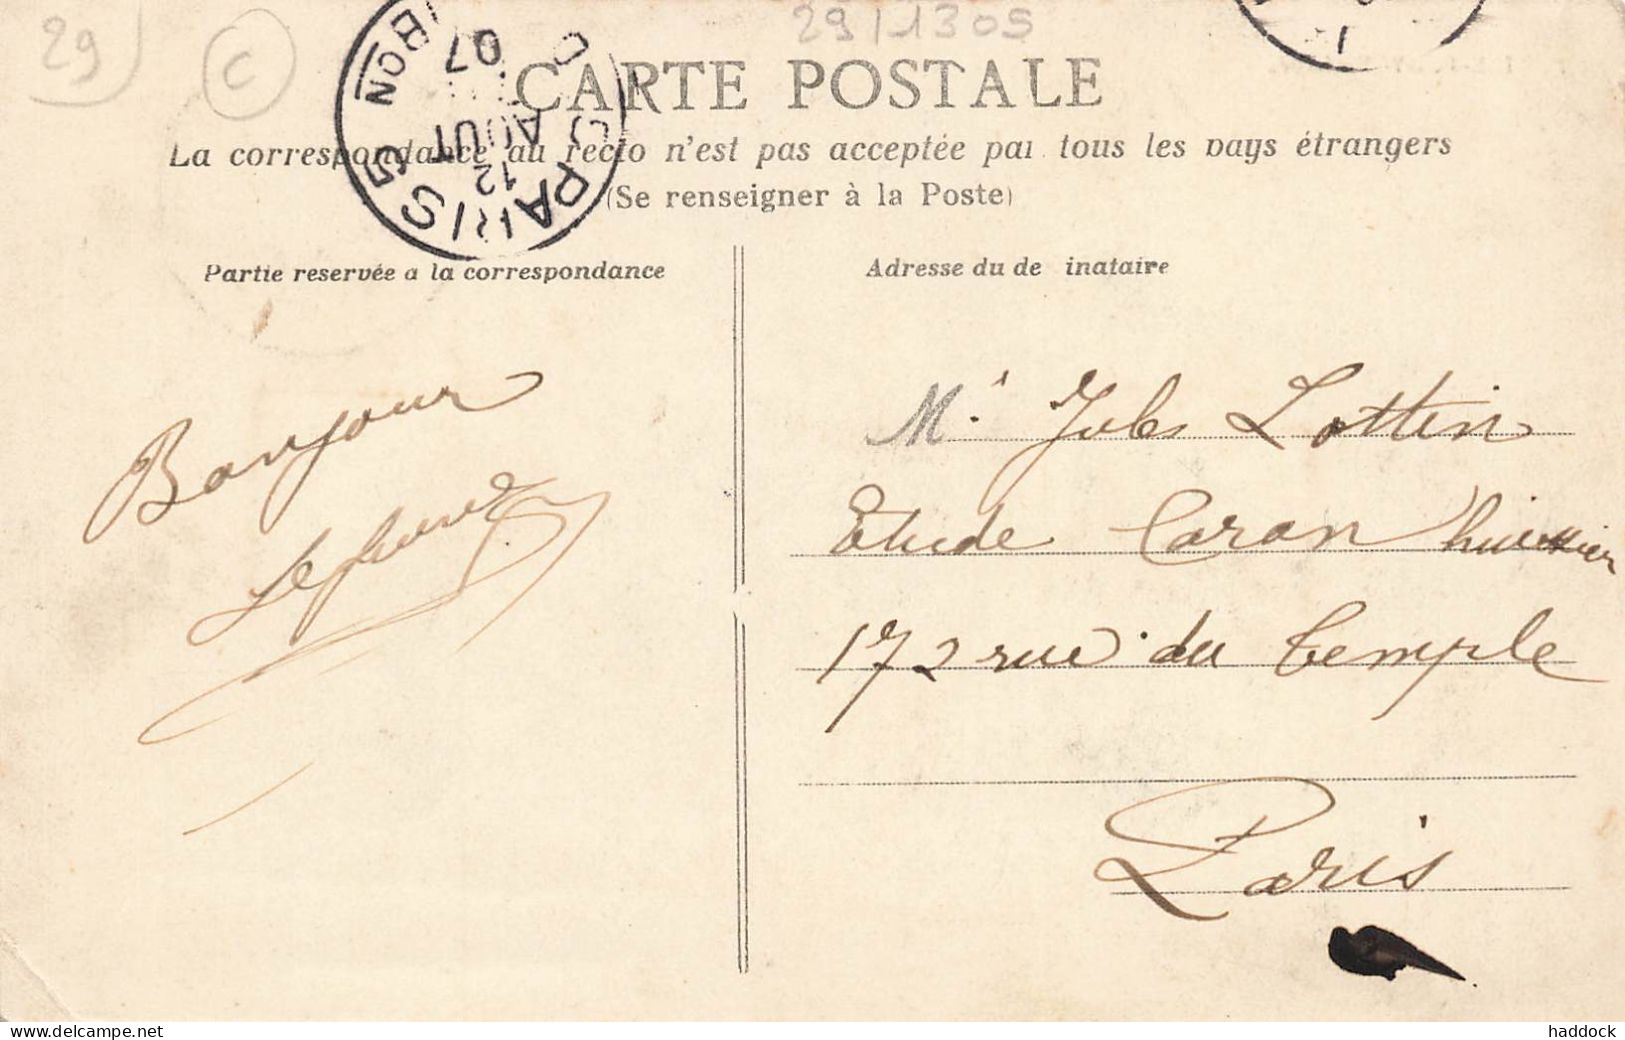 29
C
29/1305
CARTE POSTALE
La correspondance au recto n'est pas acceptée par tous les pays étrangers
(Se renseigner à la Poste)
PARIS
12
AOUT
07
BON
Partie reservée a la correspondance
Bonjour
Lefebvre
Adresse du de inataire
Mr Jules Lottin
Etude Caron huissier
172 rue du Temple
Paris
www.delcampe.net
haddock